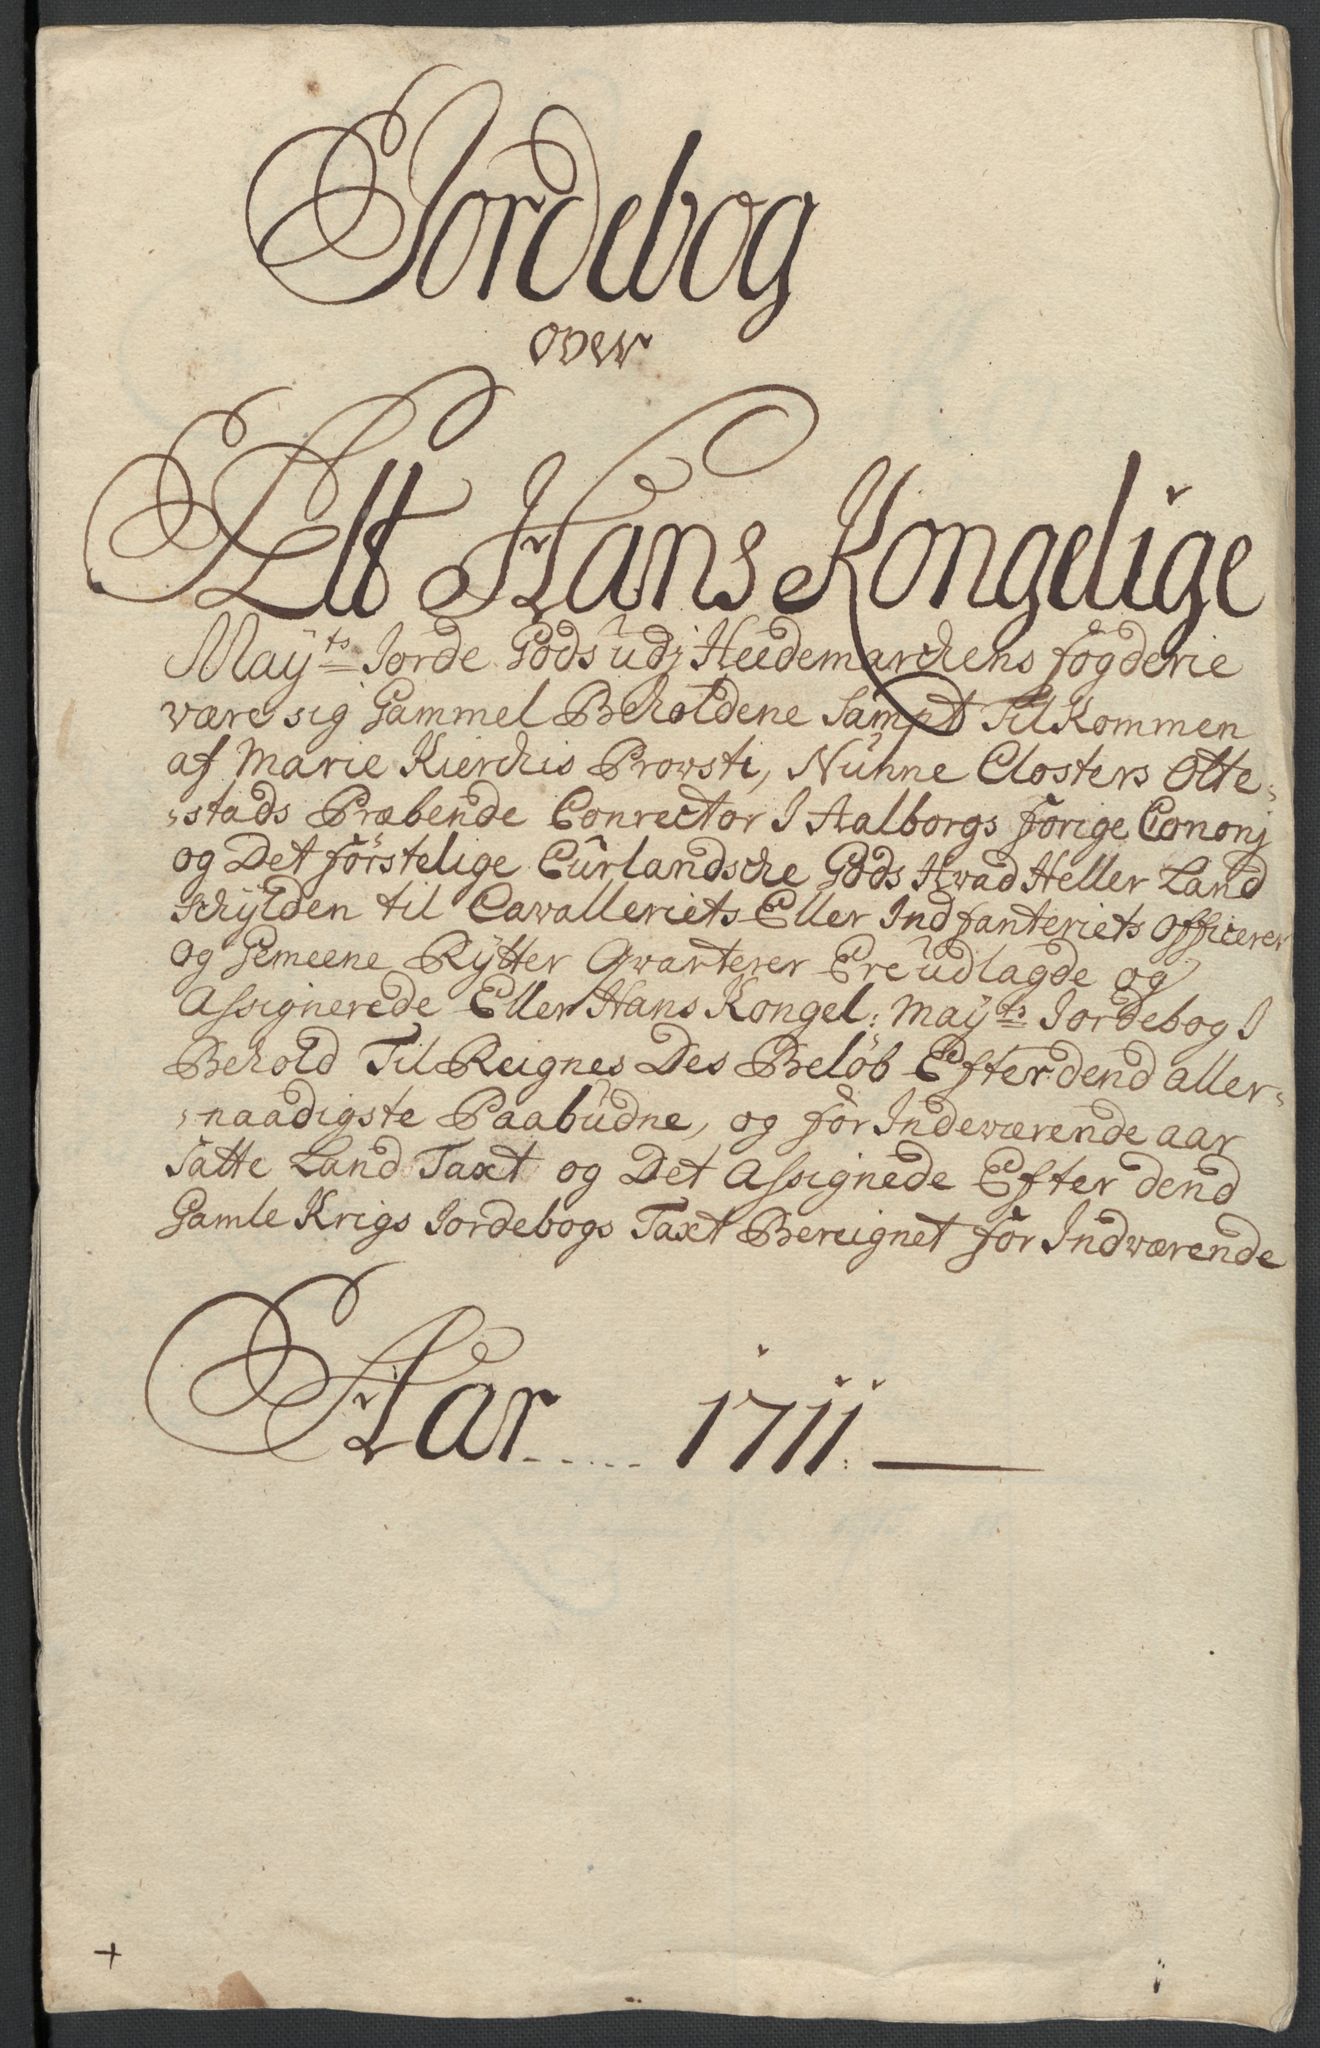 Jordebog
over
Alt Hans Kongelige
Maÿ:ts Jorde Gods udj Heedemarckens fogderie
være sig Gammel Beholdene Sampt Til Kommen
af Marie Kierckis Prowsti, Nunne Closters Otte-
-stads Præbende Conrector I Aalborgs forige Cononj
og Det förstelige Curlandsche Gods Hvad Heller Land
schÿlden til Cavalleriets Eller Indfanteriets officerer
og Gemeene Rÿtter Qvarterer Ere udlagde og
Assignerede Eller Hans Kongel: Maÿ:ts Jordebog I
Behold Til Reignes Des Belöb Efter dend aller-
-naadigste Paabudne, og for Indeværende aar
satte Land Taxt og Det Assignede Efter dend
Gamle Krigs Jordebogs Taxt Bereignet for Indværende
Aar..... 1711.